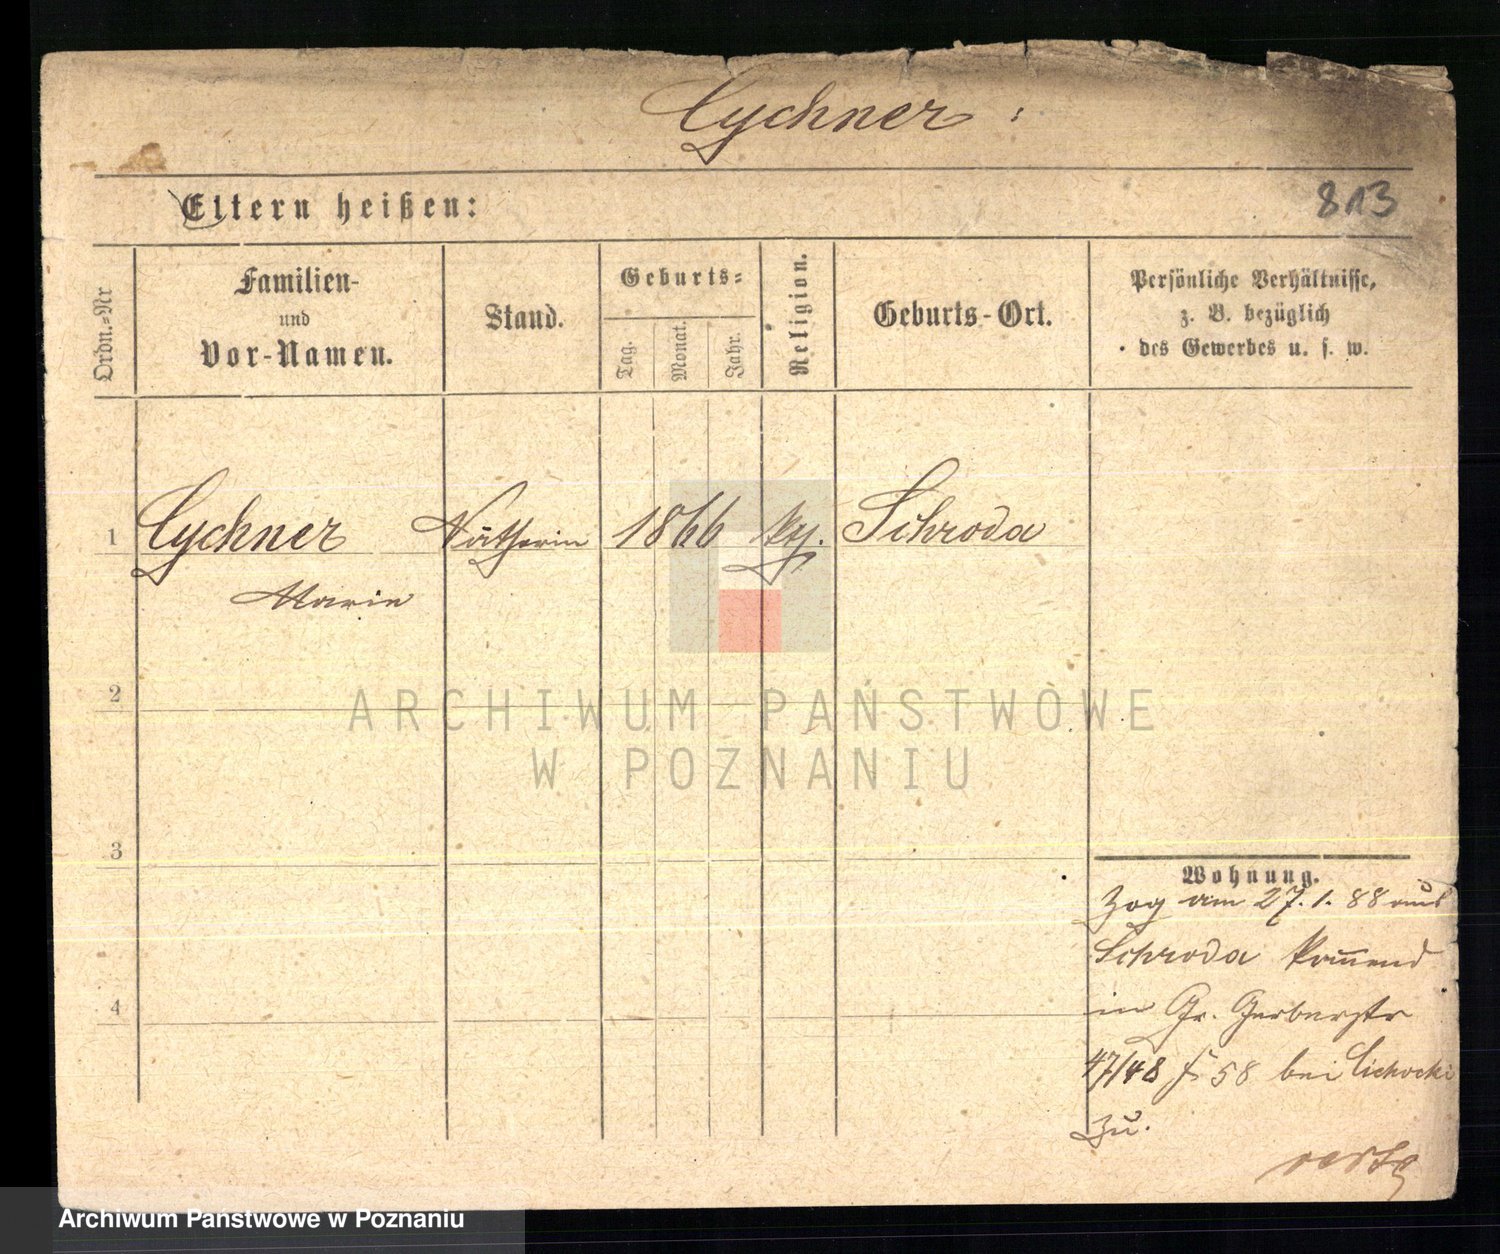 Cychner
813
Eltern heißen:
Ordn.-Nr
Familien-
und
Vor-Namen.
Stand.
Geburts-
Tag.
Monat.
Jahr.
Religion.
Geburts-Ort.
Persönliche Verhältnisse,
z. B. bezüglich
des Gewerbes u. s. w.
1 Cychner Nätherin 1866 kth. Schroda
Marie
2
3
4
Wohnung.
Zog am 27.1.88 aus
Schroda kom̄end
in Gr. Gerberstr
47/48 58 bei Cichocki
zu.
ARCHIWUM PAŃSTWOWE
W POZNANIU
Archiwum Państwowe w Poznaniu